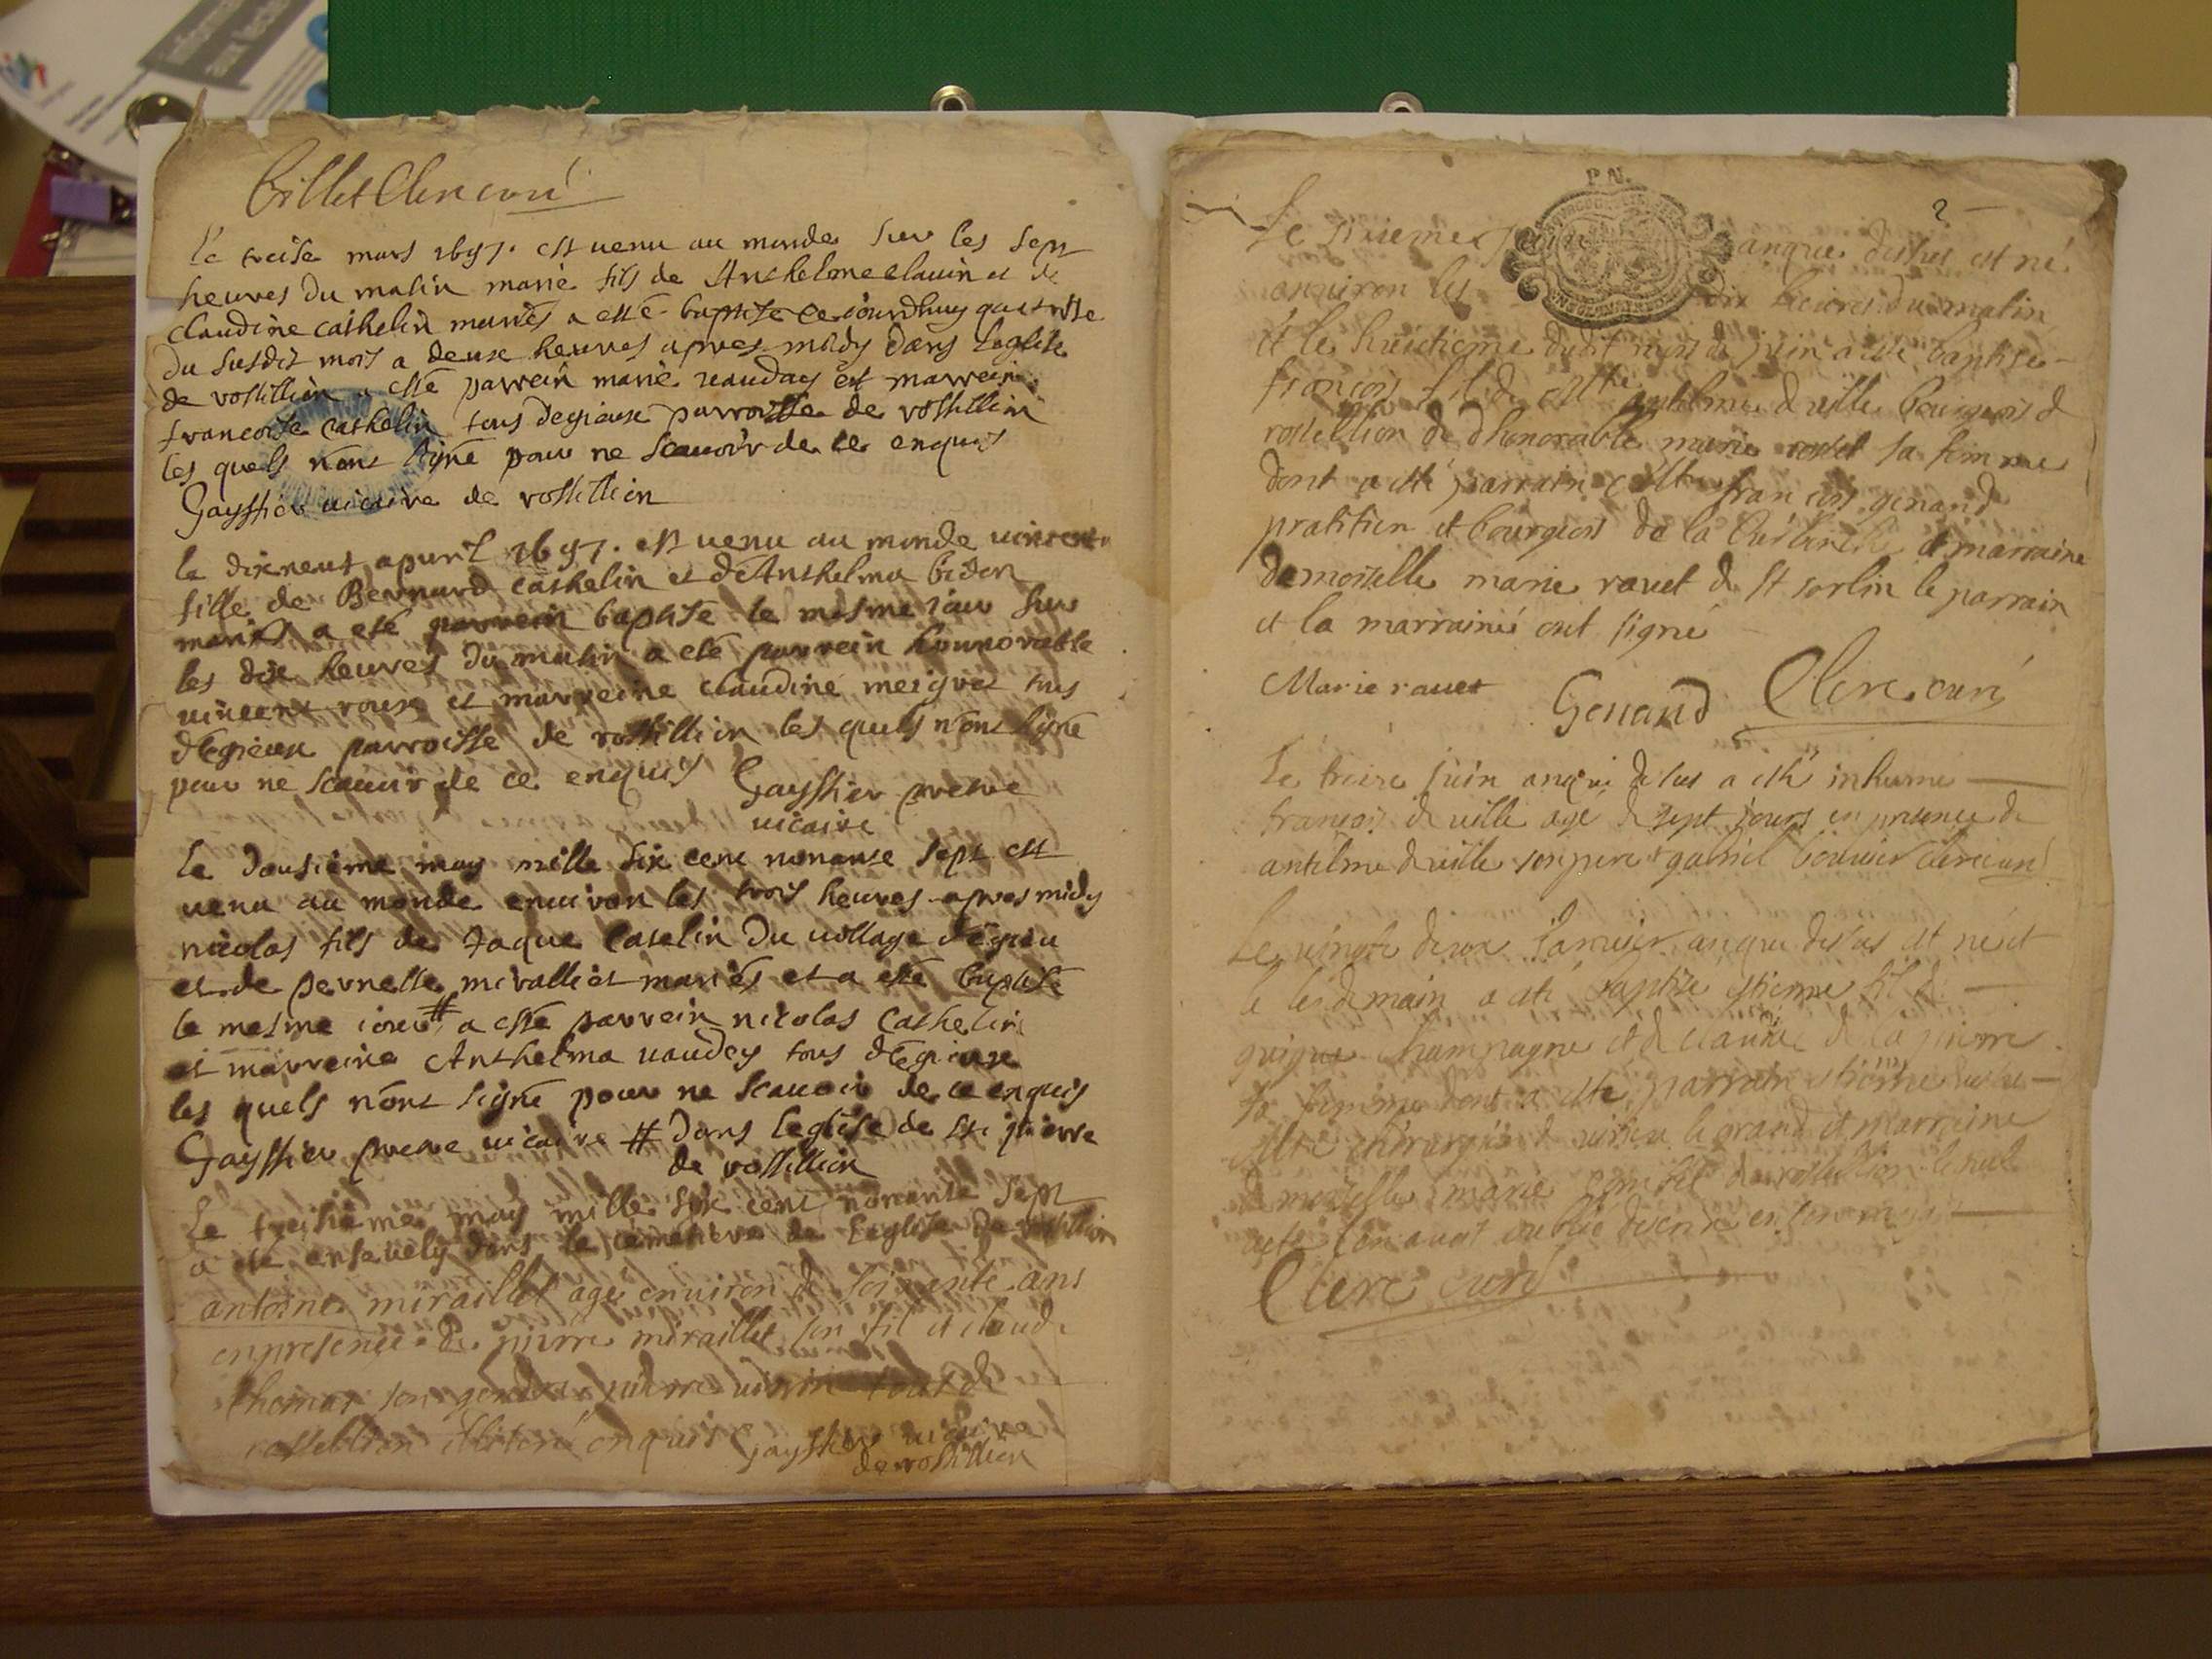 billet Clerc curé
Le treise mars 1697. est venu au monde sur les sept
heures du matin marie fils de Anthelme clavin et de
claudine cathelin mariés a esté baptise ce iourdhuy quatorse
du susdit mois a deux heures apres midy dans leglise
de rossillion a esté parrein marie vauday et marrein
francoise cathelin tous degieux parroisse de rossillin
les quels n'ont signé pour ne scauoir de ce enquis
Gaysthier uicaire de rossillin
le dixneuf apuril 1697. est uenu au monde uincente
fille de Bernard cathelin et d'Anthelma bidon
mariés a esté parrein baptise le mesme iour sur
les dix heures du matin a esté parrein honnorable
uincent roux et marreine claudine meigret tous
d'Egieux parroisse de rossillin les quels n'ont signé
pour ne scauoir de ce enquis Gaysthier pretre
uicaire
le dousième may mille six cent nonante sept est
uenu au monde enuiron les trois heures apres midy
nicolas fils de Jaque Caselin du uillage d'Egieu
et de pernette miralliet mariés et a esté baptisé
le mesme iour # a esté parrein nicolas Cathelin
et marreine Anthelma uaudey tous d'Egieux
les quels n'ont signé pour ne scauoir de ce enquis
Gaysthier pretre uicaire # dans leglise de St pierre
de rossillion
Le treisième may mille six cent nonante sept
a esté enseuely dans le cemetiere de Leglise de rossillion
antoine miraillet agé enuiron de soixante ans
en presence de pierre miraillet son fil et claude
thomas son gendre pierre tout de
rossellion illiteré enquis Gaysthier uicaire
de rossillion
P.N.
2
Le sixieme juin anque dessus est né
enuiron les dix heures du matin
et le huictieme dudit mois de juin a esté baptise
francois fil de antelme deuille bourgeois de
rossellion et d'honorable marie rosset sa femme
dont a esté parrain francois genand
pratitien et bourgeois de la et marraine
damoiselle marie rauet de St sorlin le parrain
et la marraine ont signé
Marie rauet Genand Clerc curé
Le treize juin anque dessus a esté inhumé
francois deuille agé de sept jours en presence de
antelme deuille son pere et gabriel bouuier Clerc curé
Le uingte deux Januier anque dessus est né et
le lendemain a esté baptise estienne fil de
guigue champagne et de claudine de la pierre
sa femme dont a esté parrain estienne
chirurgien de uirieu le grand et marraine
damoiselle marie de rossellion le sul
acte l'on auoit oublié descrire en son rang
Clerc curé